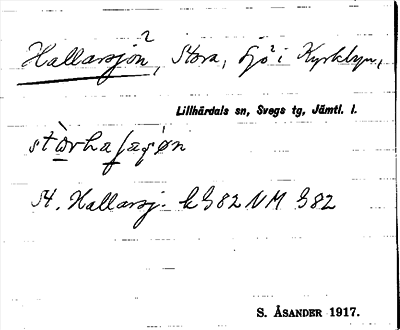 Hallarsjön², Stora, sjö² i Kyrkbyn,
Lillhärdals sn, Svegs tg, Jämtl. l.
St. Hallarsj. k G82 NM G82
S. ÅSANDER 1917.